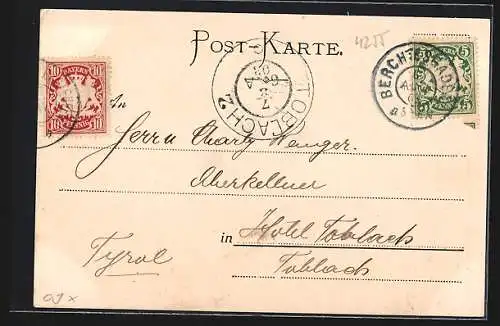 4255
POST-KARTE.
BAYERN
10 10
PFENNIG
TOBLACH 2
BERCHTESGADEN
5 5
An
Herrn Charly Wenger
Oberkellner
in Hotel Toblach
Tyrol
Toblach